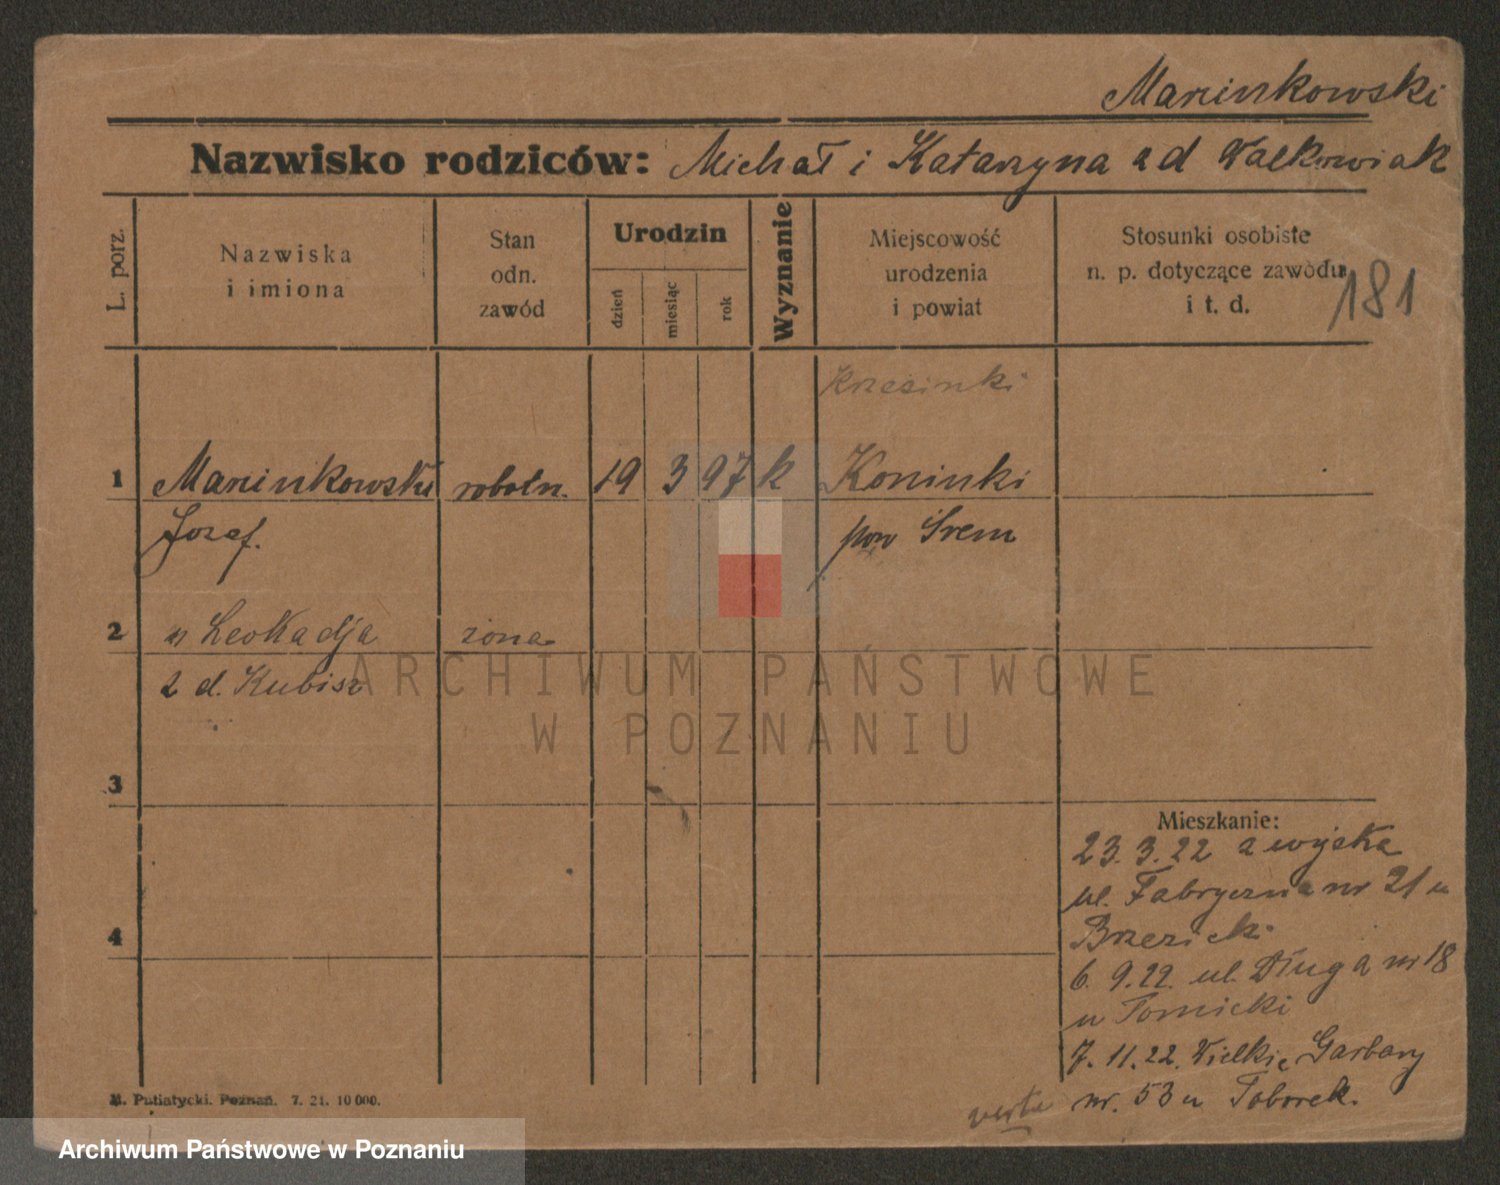 Marcinkowski
Nazwisko rodziców: Michał i Katarzyna z d Walkowiak
L. porz.
Nazwiska
i imiona
Stan
odn.
zawód
Urodzin
dzień
miesiąc
rok
Wyznanie
Miejscowość
urodzenia
i powiat
Stosunki osobiste
n. p. dotyczące zawodu
i t. d.
181
Krzesinki
1 Marcinkowski robotn. 19 3 97 k Koninki
Jozef. pow Śrem
2 " Leokadja żona
z d. Kubisz
3
Mieszkanie:
23. 3. 22 z wojska
ul. Fabryczna nr 21 u
4
Brzezicki
6. 9. 22. ul. Długa nr 18
u Tomicki
7. 11. 22. Wielkie Garbary
nr. 53 u Toborek.
verte
M. Putiatycki. Poznań. 7. 21. 10 000.
ARCHIWUM PAŃSTWOWE
W POZNANIU
Archiwum Państwowe w Poznaniu